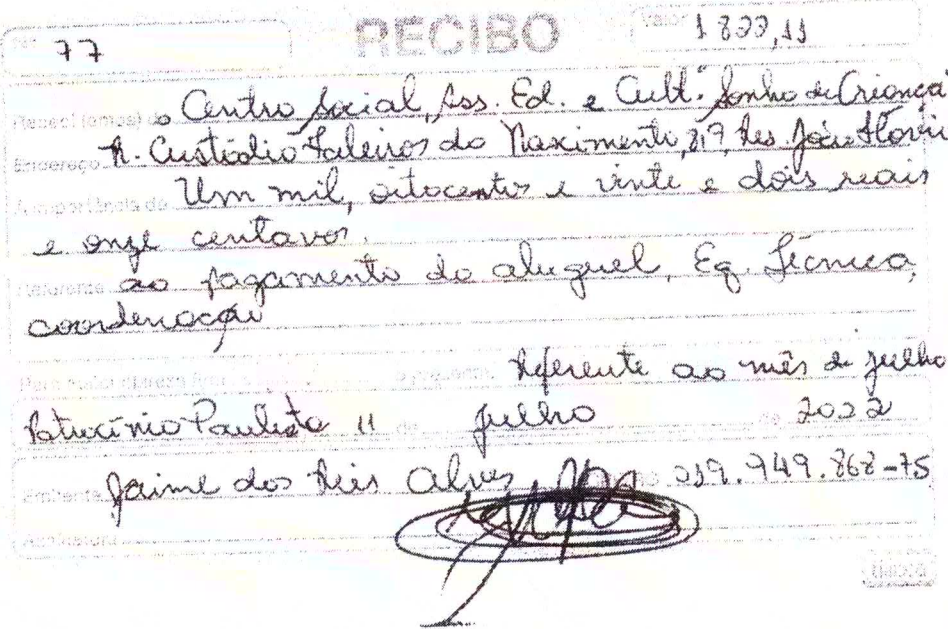 Nº 77 RECIBO Valor 1822,11
Recebi (emos) de o Centro Social, Ass. Ed. e Cult. Sonho de Criança
Endereço R. Custódio Faleiros do Nascimento, 317, Res. João Flori
A importância de Um mil, oitocentos e vinte e dois reais
e onze centavos.
Referente ao pagamento do aluguel, Eq. Técnica,
coordenação
Para maior clareza Referente ao mês de julho
Patrocínio Paulista 11 de julho de 2022
Emitente Jaime dos Reis Alves 219.949.868-75
Assinatura